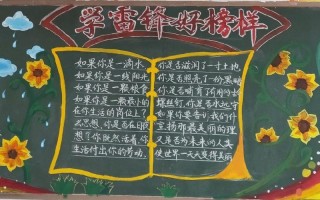 学雷锋好榜样
如果你是一滴水,你是否滋润了一寸土地
如果你是一线阳光 你是否照亮了一份黑暗
如果你是一颗粮食 你是否哺育了有用的生
如果你是一颗最小的 螺丝钉,你是否永远守
在你生活的岗位上?如果你要告诉我们什
么思想,你是否在日夜 宣扬那最美丽的理
想?你既然活着,你 又是否为未来的人类
生活付出你的劳动,使世界一天天变得美丽